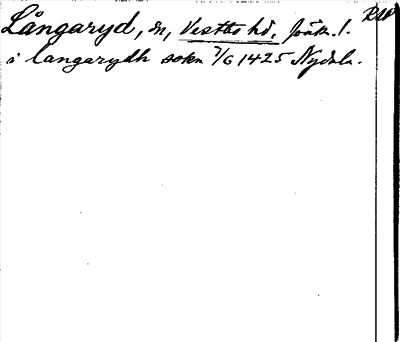 Långaryd, sn, Västbo hd, Jönk. l.
i langarydh sokn 7/6 1425 Nydala.